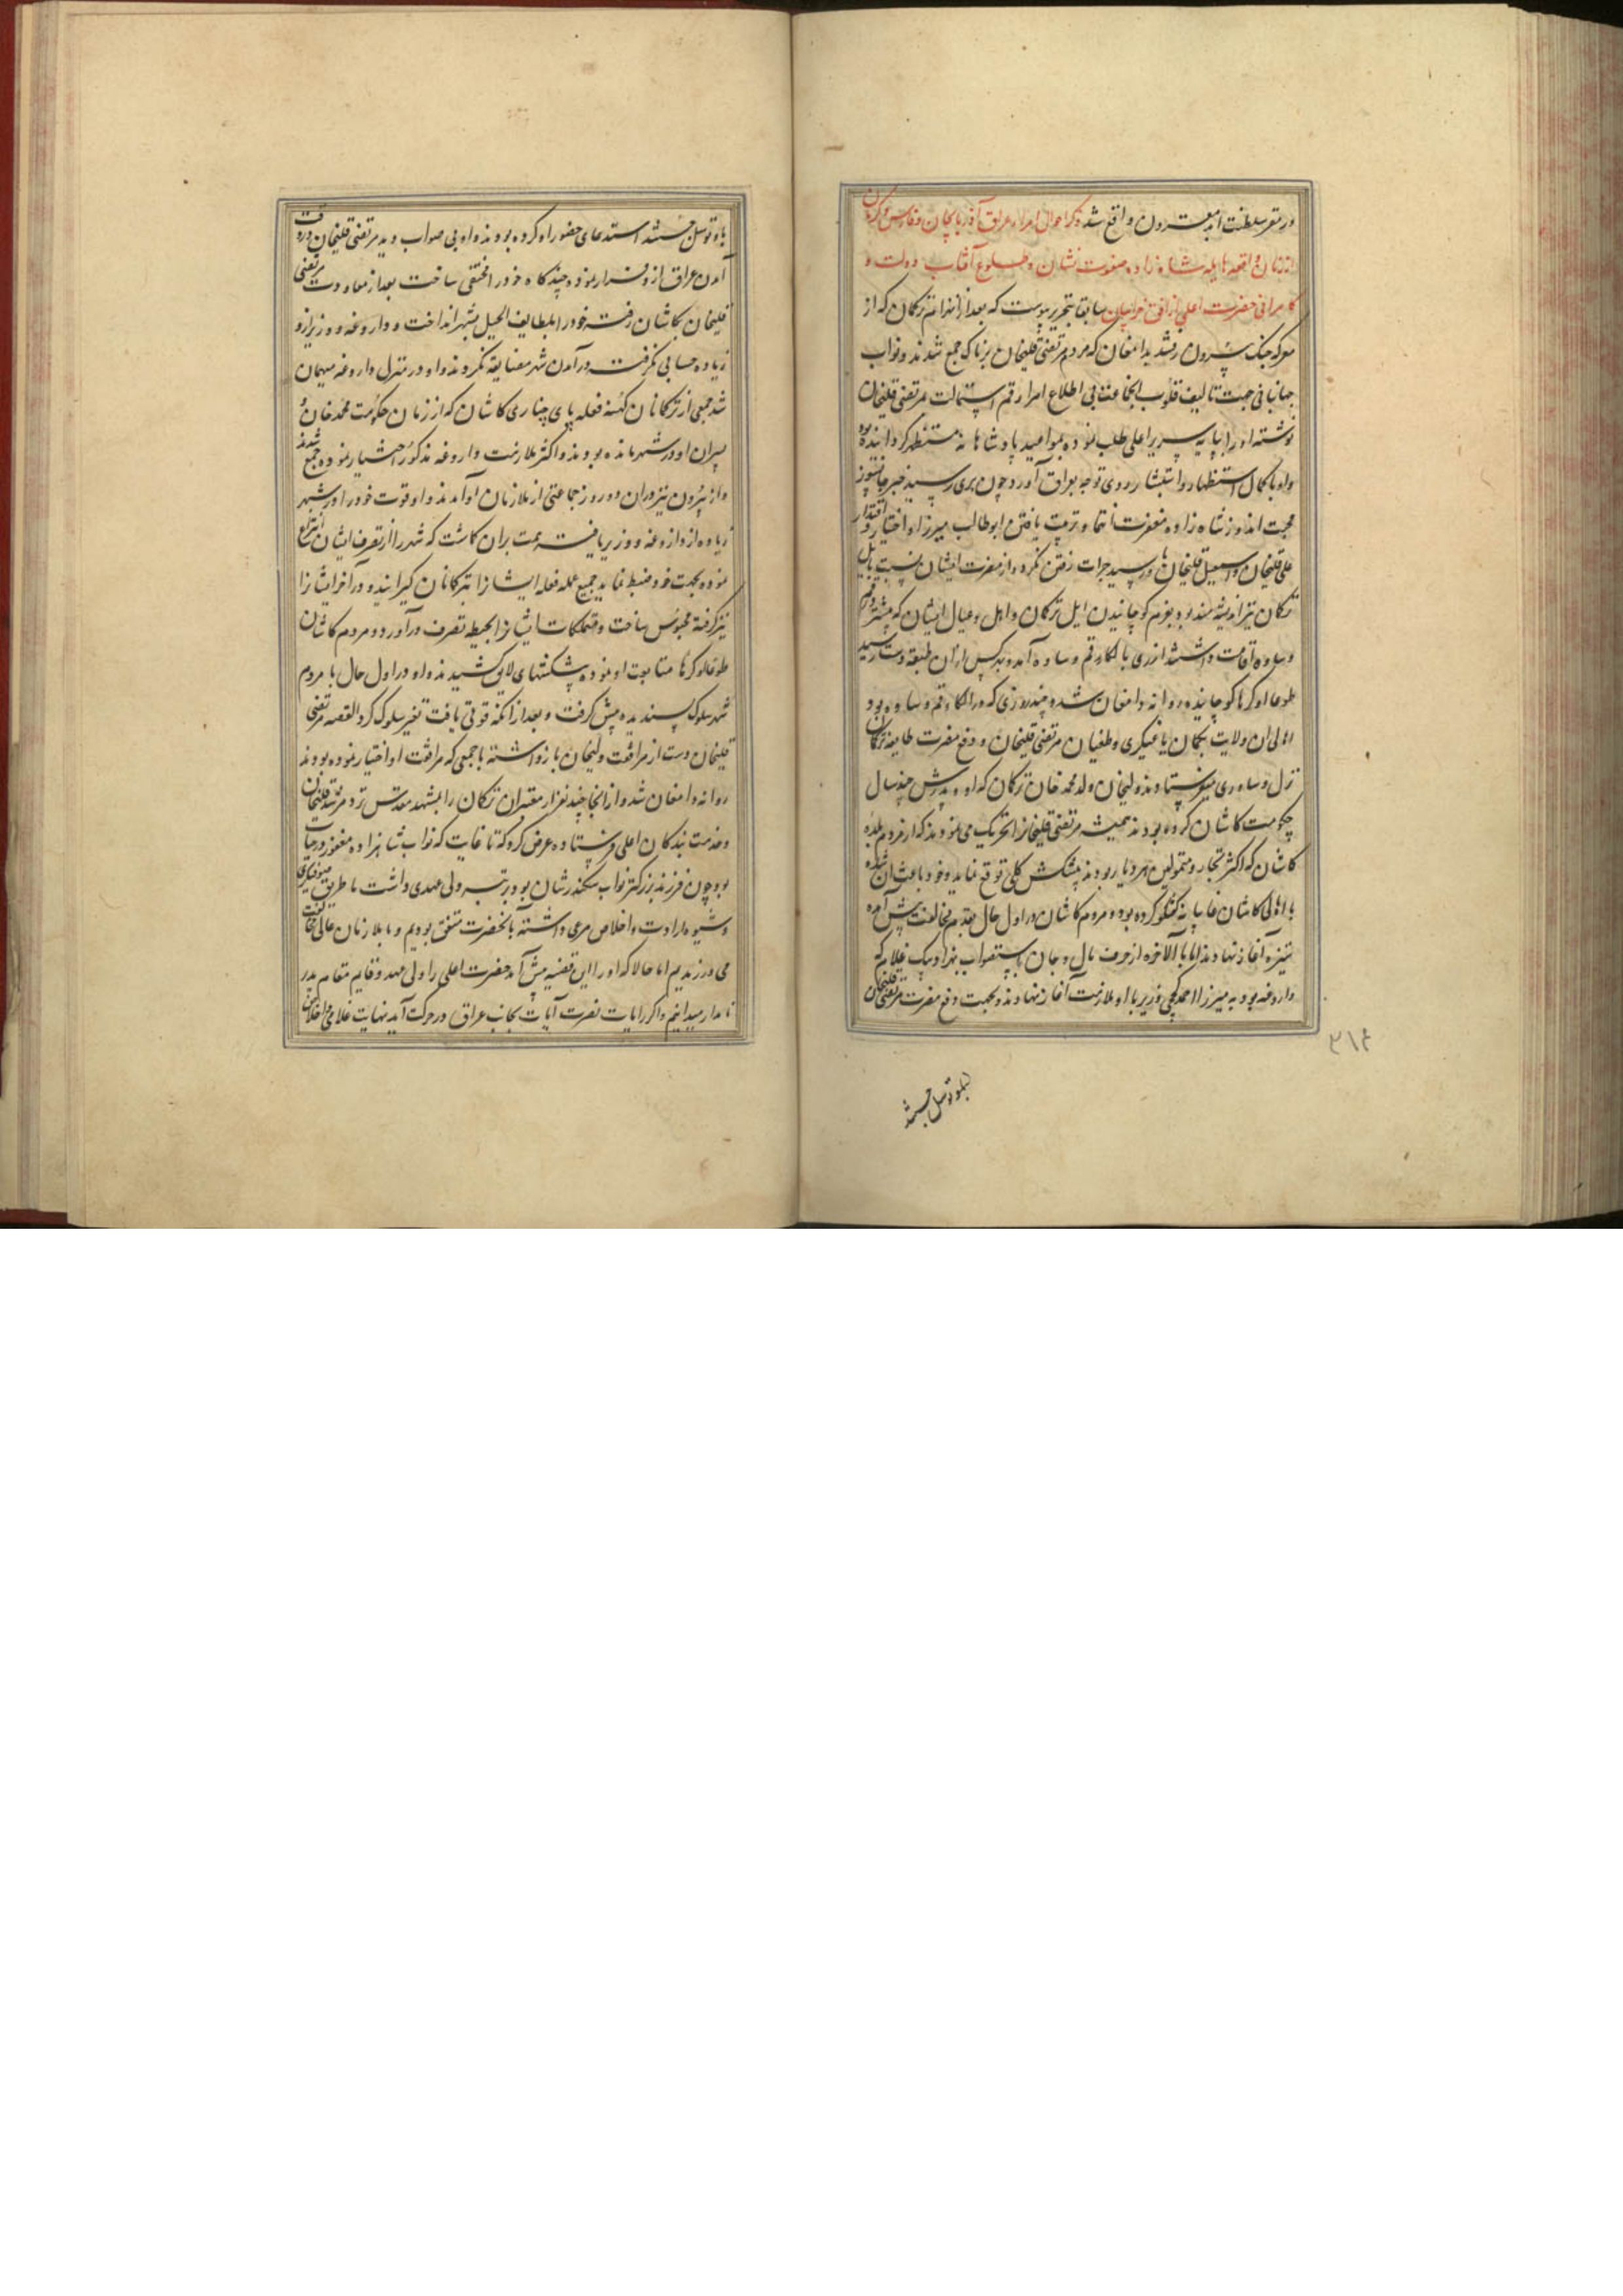 در مقر سلطنت ابد مقرون واقع شد ذکر احوال امراء عراق آذربایجان و فارس و کرمان
از زمان واقعه هایله شاه زاده مغفرت نشان و طلوع آفتاب دولت و
کامرانی حضرت اعلی از افق خراسان سابقا تحریر پیوست که بعد از انهزام ترکمان که از
معرکه جنک بیرون رفتند بدامغان که مردم مرتضی قلیخان پرناک جمع شدند و نواب
جهانبانی جهت تالیف قلوب انجماعت بی اطلاع امرا رقم استمالت مرتضی قلیخان
نوشته او را بپایه سریر اعلی طلب نموده بمواعید پادشاهانه مستظهر کردانیده بود
و او با کمال استظهار و استبشار روی توجه بعراق آورد چون بری رسید خبر جانسوز
محبت اندوز شاه زاده مغفرت انتما و تربیت یافتن ابوطالب میرزا و اختیار و اقتدار
علی قلیخان و اسمعیل قلیخان باو رسید جرات رفتن نکرد و از مضرت ایشان نسبت بایل
ترکمان نیز اندیشه مند بود بعزم کوچانیدن ایل ترکمان و اهل و عیال ایشان که بیشتر در قم
و ساوه اقامت داشتند از ری بالکاء قم و ساوه آمد و بهر کس از آن طبقه دست رسید
طوعا او کرها کوچانیده روانه دامغان شد و چند روزی که در الکاء قم و ساوه بود
اهالی ان ولایت بکمان یاغیکری و طغیان مرتضی قلیخان و دفع مضرت طایفه ترکمان
نزل و ساوری میفرستادند ولیخان ولد محمد خان ترکمان که او و پدرش چند سال
حکومت کاشان کرده بودند همیشه مرتضی قلیخانرا تحریک می نمودند که از مردم بلده
کاشان که اکثر تجار و متمولین هر دیار بودند پیشکش کلی توقع نماید و خود باعث ان شده
با اهالی کاشان غایبانه گفتگو کرده بود و مردم کاشان در اول حال بقدم مخالفت پیش آمده
ستیزه آغاز نهادند اما بالاخره از خوف مال و جان باستصواب بهزاد بیک غلام که
داروغه بود به میرزا احمد کججی وزیر با او ملازمت آغاز نهادند و بجهت دفع مضرت مرتضی قلیخان
۳۱۴
باو توسل جستند
باو توسل جستند استدعای حضور او کرده بودند و او بی صواب دید مرتضی قلیخان در وقت
آمدن عراق از و فرار نموده چندگاه خود را مختفی ساخت بعد از معاودت مرتضی
قلیخان بکاشان رفته خود را بلطایف الحیل بشهر انداخت و داروغه و وزیر ازو
زیاده حسابی نکرفته در آمدن شهر مضایقه نکردند و او در منزل داروغه میهمان
شد جمعی از ترکمانان کهنه فعله پای چناری کاشان که از زمان حکومت محمد خان و
پسران او در شهر مانده بودند و اکثر ملازمت داروغه مذکور اختیار نموده جمع شدند
و از بیرون نیز در ان دو روز جماعتی از ملازمان او آمدند و او قوت خود را در شهر
زیاده از داروغه و وزیر یافته همت بران کماشت که شهر را از تصرف ایشان انتزاع
نموده بجهت خود ضبط نماید جمیع عمله فعله ایشانرا بترکمانان گیرانید و در آخر ایشانرا
نیز گرفته محبوس ساخت و متملکات ایشانرا بحیطه تصرف در آورد و مردم کاشان
طوعا و کرها متابعت او نموده پیشکشهای لایق کشیدند و او در اول حال با مردم
شهر سلوک پسندیده پیش کرفت و بعد از انکه قوتی یافت تغییر سلوک کرد القصه مرتضی
قلیخان دست از مرافقت ولیخان باز داشته با جمعی که مرافقت او اختیار نموده بودند
روانه دامغان شد و از انجا چند نفر از معتبران ترکمان را بمشهد مقدس نزد مرشد قلیخان
و خدمت بندکان اعلی فرستاده عرض کرد که تا غایت که نواب شاهزاده مغفور در حیات
بود چون فرزند بزرگتر نواب سکندر شان بود و رتبه ولی عهدی داشت ما طریق صوفیکری
و شیوه ارادت و اخلاص مرعی داشته بانحضرت متفق بودیم و با ملازمان عالی مخالفت
می ورزیدیم اما حالا که او را این قضیه پیش آمد حضرت اعلی را ولی عهد و قایم مقام پدر
نامدار میدانیم و اگر رایات نصرت آیات بجانب عراق در حرکت آید نهایت غلامی و اخلاص